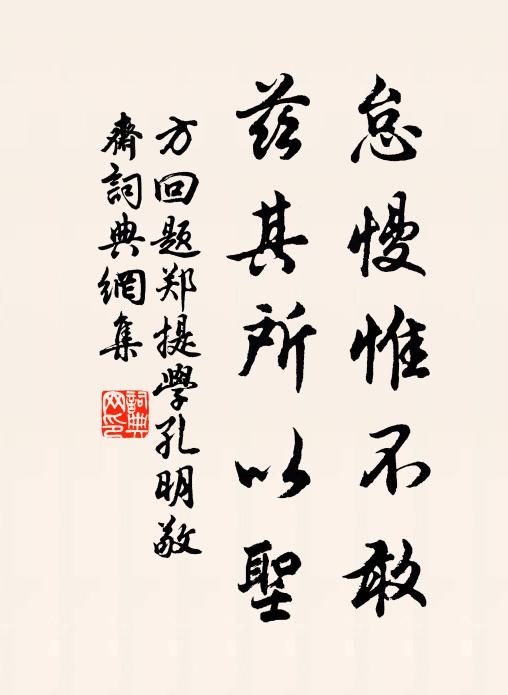 怠慢惟不敢
茲其所以聖
方回题郑提學孔明敬
齋詞典網集
詞典网印